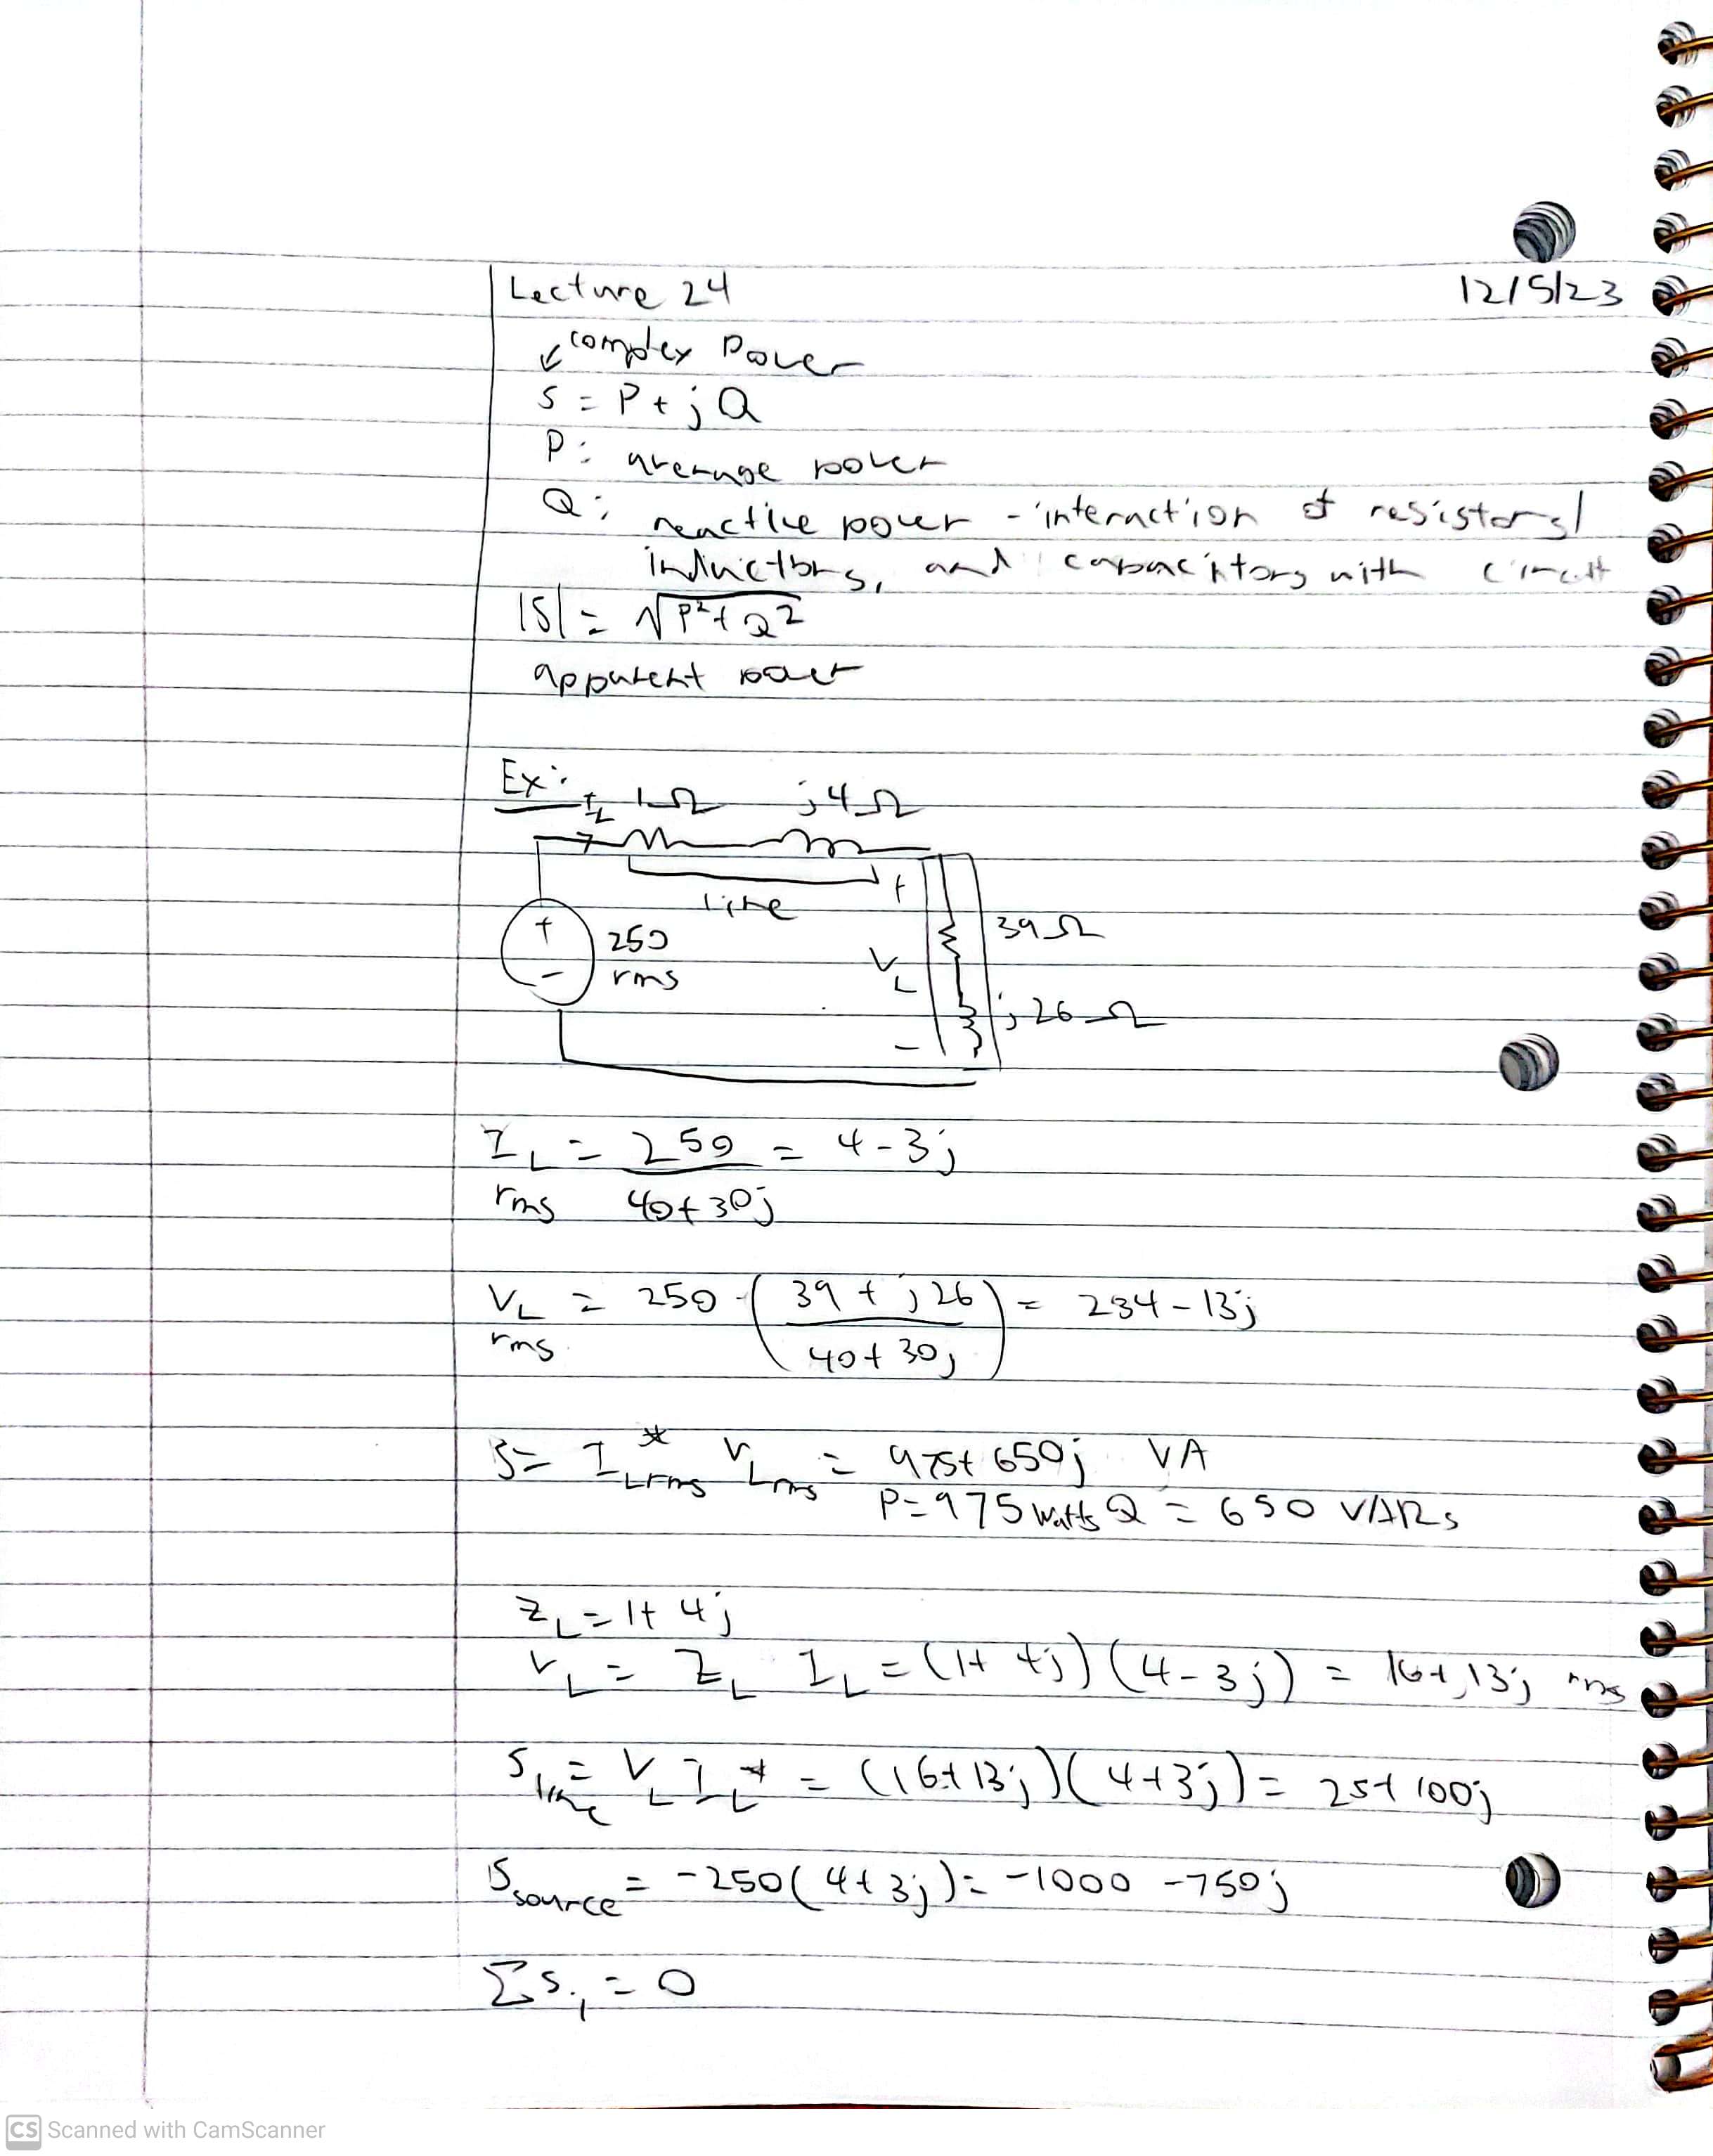 Lecture 24
12/5/23
complex Power
S = P + jQ
P: average power
Q: reactive power - interaction of resistors,
inductors, and capacitors with circuit
|S| = √P²+Q²
apparent power
Ex:
I_L 1Ω j4Ω
line
+
250
rms
-
+
V_L
-
39Ω
j26Ω
I_L = 250 = 4-3j
rms 40+30j
V_L = 250 · (39 + j26) = 234 - 13j
rms 40+30j
S = I_Lrms* V_Lrms = 975+650j VA
P=975 watts Q = 650 VARs
Z_L = 1+4j
V_L = Z_L I_L = (1+4j)(4-3j) = 16+13j rms
S_line = V_L I_L* = (16+13j)(4+3j) = 25+100j
S_source = -250(4+3j) = -1000 -750j
ΣS_i = 0
CS Scanned with CamScanner